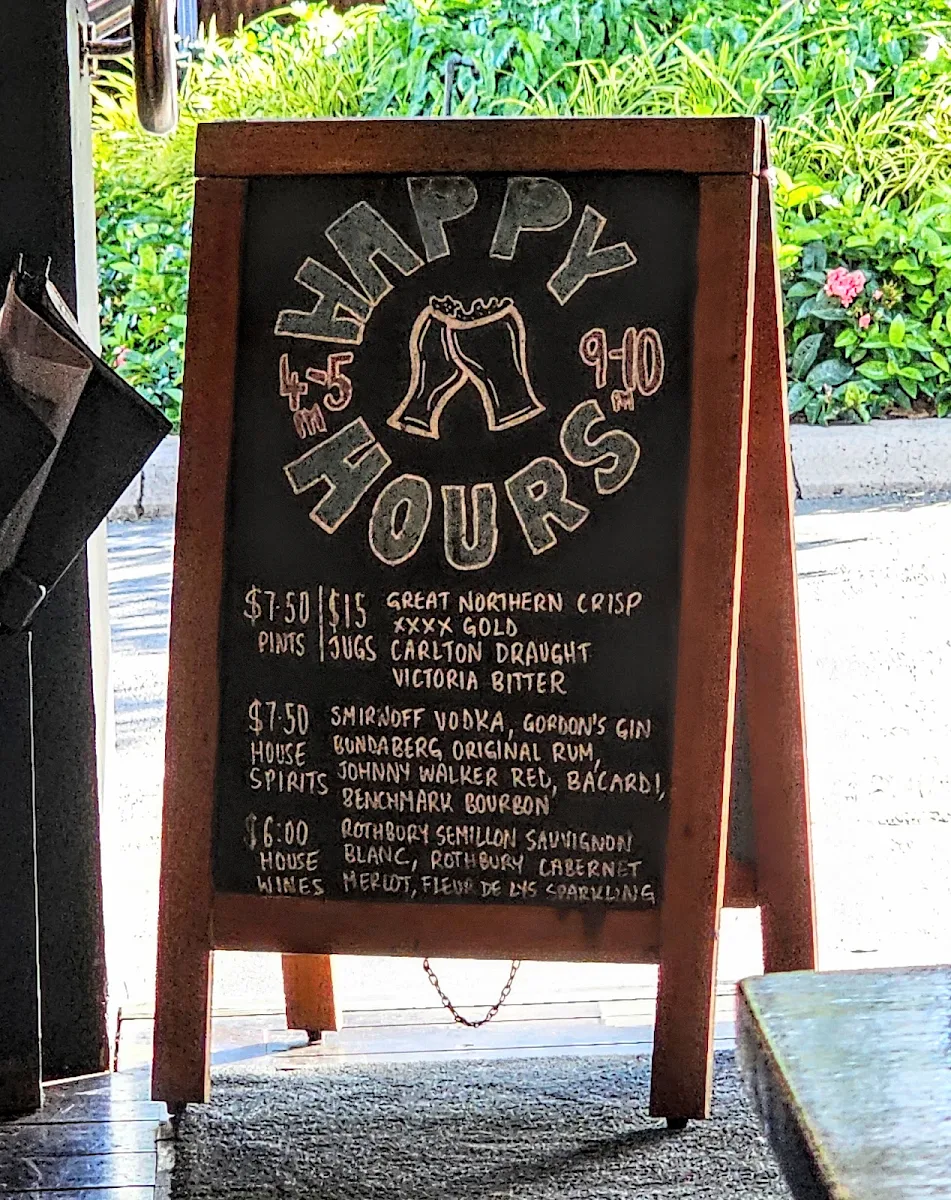 HAPPY
4-5
PM
9-10
PM
HOURS
$7.50 | $15 GREAT NORTHERN CRISP
XXXX GOLD
PINTS | JUGS CARLTON DRAUGHT
VICTORIA BITTER
$7.50 SMIRNOFF VODKA, GORDON'S GIN
HOUSE BUNDABERG ORIGINAL RUM,
SPIRITS JOHNNY WALKER RED, BACARDI,
BENCHMARK BOURBON
$6:00 ROTHBURY SEMILLON SAUVIGNON
HOUSE BLANC, ROTHBURY CABERNET
WINES MERLOT, FLEUR DE LYS SPARKLING